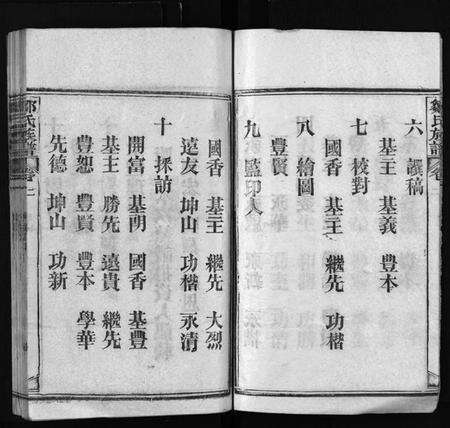 鄒氏族譜
卷
六 謄稿
基主 基義 豐本
七 校對
國香 基主 繼先 功楷
八 繪圖
豐賢
九 監印人
國香 基主 繼先 大烈
遠友 坤山 功楷 永清
十 採訪
開富 基明 國香 基豐
基主 勝先 遠貴 繼先
豐恕 豐賢 豐本 學華
先德 坤山 功新
鄒氏族譜
卷